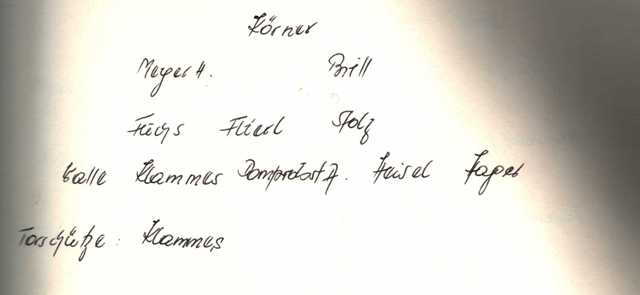 Körner
Meyer H. Brill
Fuchs Flierl Stolz
Galle Klammes Domprobst A. Heisel Hager
Torschütze: Klammes